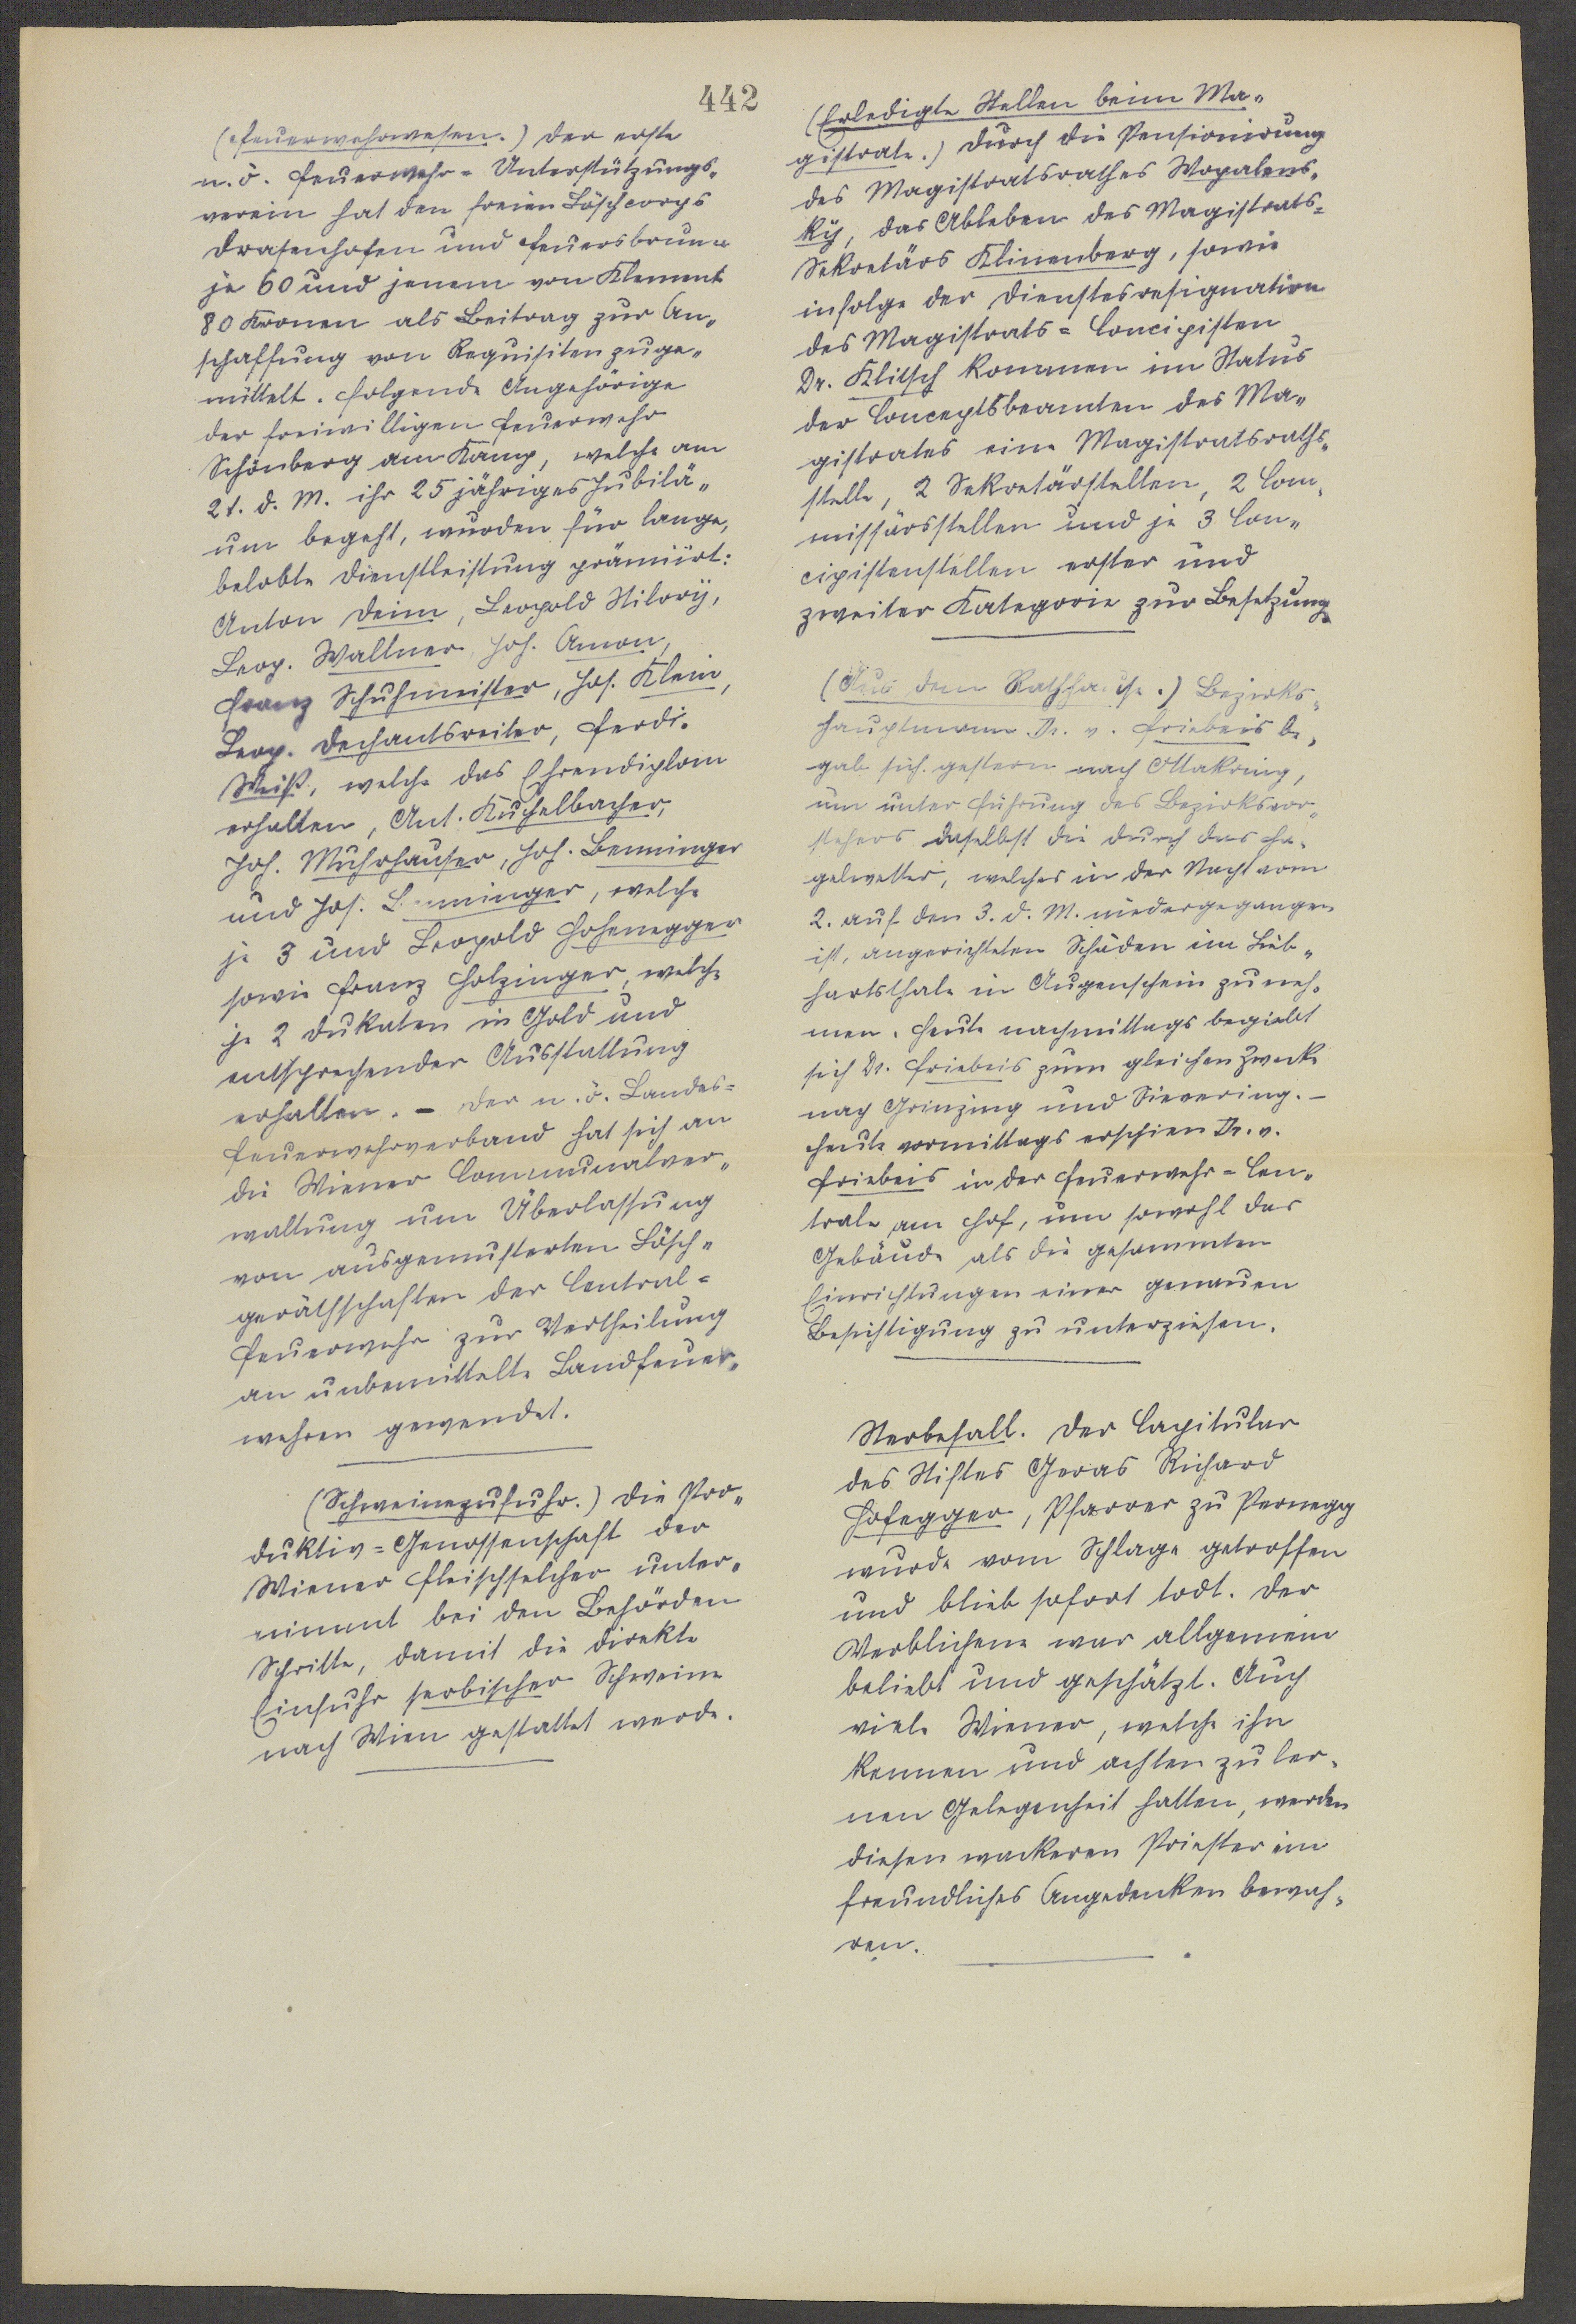 442
(Feuerwehrwesen.) Der erste
n. ö. Feuerwehr-Unterstützungs-
verein hat den freien Löschcorps
Drasenhofen und Feuersbrunn
je 60 und jenem von Klement
80 Kronen als Beitrag zur An-
schaffung von Requisiten zuge-
mittelt. Folgende Angehörige
der freiwilligen Feuerwehr
Schönberg am Kamp, welche am
21. d. M. ihr 25 jähriges Jubilä-
um begeht, wurden für lange,
belobte Dienstleistung prämiirt:
Anton Deim, Leopold Hilory,
Leop. Wallner, Joh. Amon,
Franz Schuhmeister, Jos. Klein,
Leop. Dechantsreiter, Ferdi.
Weiß, welche das Ehrendiplom
erhalten, Ant. Kuchelbacher,
Joh. Muhrhauser, Joh. Benninger
und Jos. Benninger, welche
je 3 und Leopold Hohenegger
sowie Franz Holzinger, welche
je 2 Dukaten in Gold und
entsprechender Ausstattung
erhalten. – Der n. ö. Landes-
feuerwehrverband hat sich an
die Wiener Communalver-
waltung um Überlassung
von ausgemusterten Lösch-
geräthschaften der Central-
feuerwehr zur Vertheilung
an unbemittelte Landfeuer-
wehren gewendet.
(Schweinezufuhr.) Die Pro-
duktiv-Genossenschaft der
Wiener Fleischselcher unter-
nimmt bei den Behörden
Schritte, damit die direkte
Einfuhr serbischer Schweine
nach Wien gestattet werde.
(Erledigte Stellen beim Ma-
gistrate.) Durch die Pensionirung
des Magistratsrathes Wopalens-
ky, das Ableben des Magistrats-
Sekretärs Klinenberg, sowie
infolge der Dienstesresignation
des Magistrats-Concipisten
Dr. Klitsch kommen im Status
der Conceptsbeamten des Ma-
gistrates eine Magistratsraths-
stelle, 2 Sekretärstellen, 2 Com-
missärsstellen und je 3 Con-
cipistenstellen erster und
zweiter Kategorie zur Besetzung.
(Aus dem Rathhause.) Bezirks-
hauptmann Dr. v. Friebeis be-
gab sich gestern nach Ottakring,
um unter Führung des Bezirksvor-
stehers daselbst die durch das Ha-
gelwetter, welches in der Nacht vom
2. auf den 3. d. M. niedergegangen
ist, angerichteten Schäden im Lieb-
hartsthale in Augenschein zu neh-
men. Heute nachmittags begiebt
sich Dr. Friebeis zum gleichen Zwecke
nach Grinzing und Sievering. –
Heute vormittags erschien Dr. v.
Friebeis in der Feuerwehr-Cen-
trale am Hof, um sowohl das
Gebäude als die gesammten
Einrichtungen einer genauen
Besichtigung zu unterziehen.
Sterbefall. Der Capitular
des Stiftes Geras Richard
Hofegger, Pfarrer zu Pernegg
wurde vom Schlage getroffen
und blieb sofort todt. Der
Verblichene war allgemein
beliebt und geschätzt. Auch
viele Wiener, welche ihn
kennen und achten zu ler-
nen Gelegenheit hatten, werden
diesem wackeren Priester ein
freundliches Angedenken bewah-
ren.